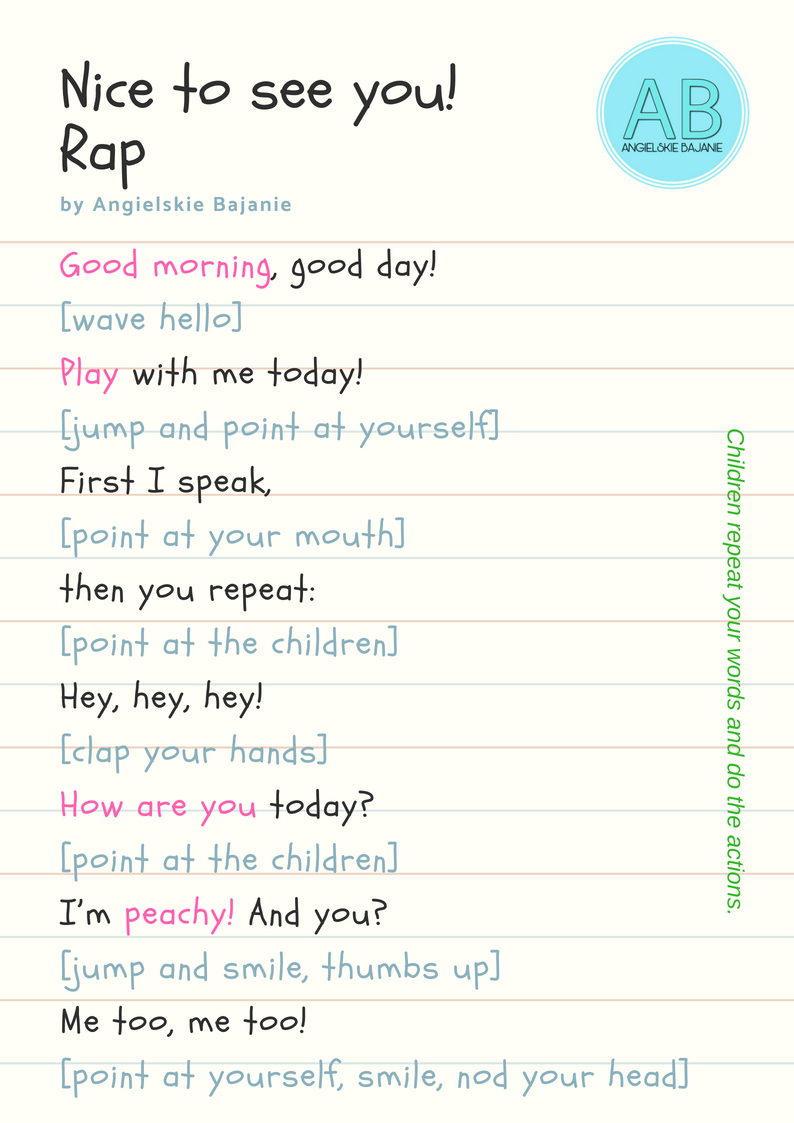 Nice to see you!
Rap
by Angielskie Bajanie
AB
ANGIELSKIE BAJANIE
Good morning, good day!
[wave hello]
Play with me today!
[jump and point at yourself]
First I speak,
[point at your mouth]
then you repeat:
[point at the children]
Hey, hey, hey!
[clap your hands]
How are you today?
[point at the children]
I'm peachy! And you?
[jump and smile, thumbs up]
Me too, me too!
[point at yourself, smile, nod your head]
Children repeat your words and do the actions.